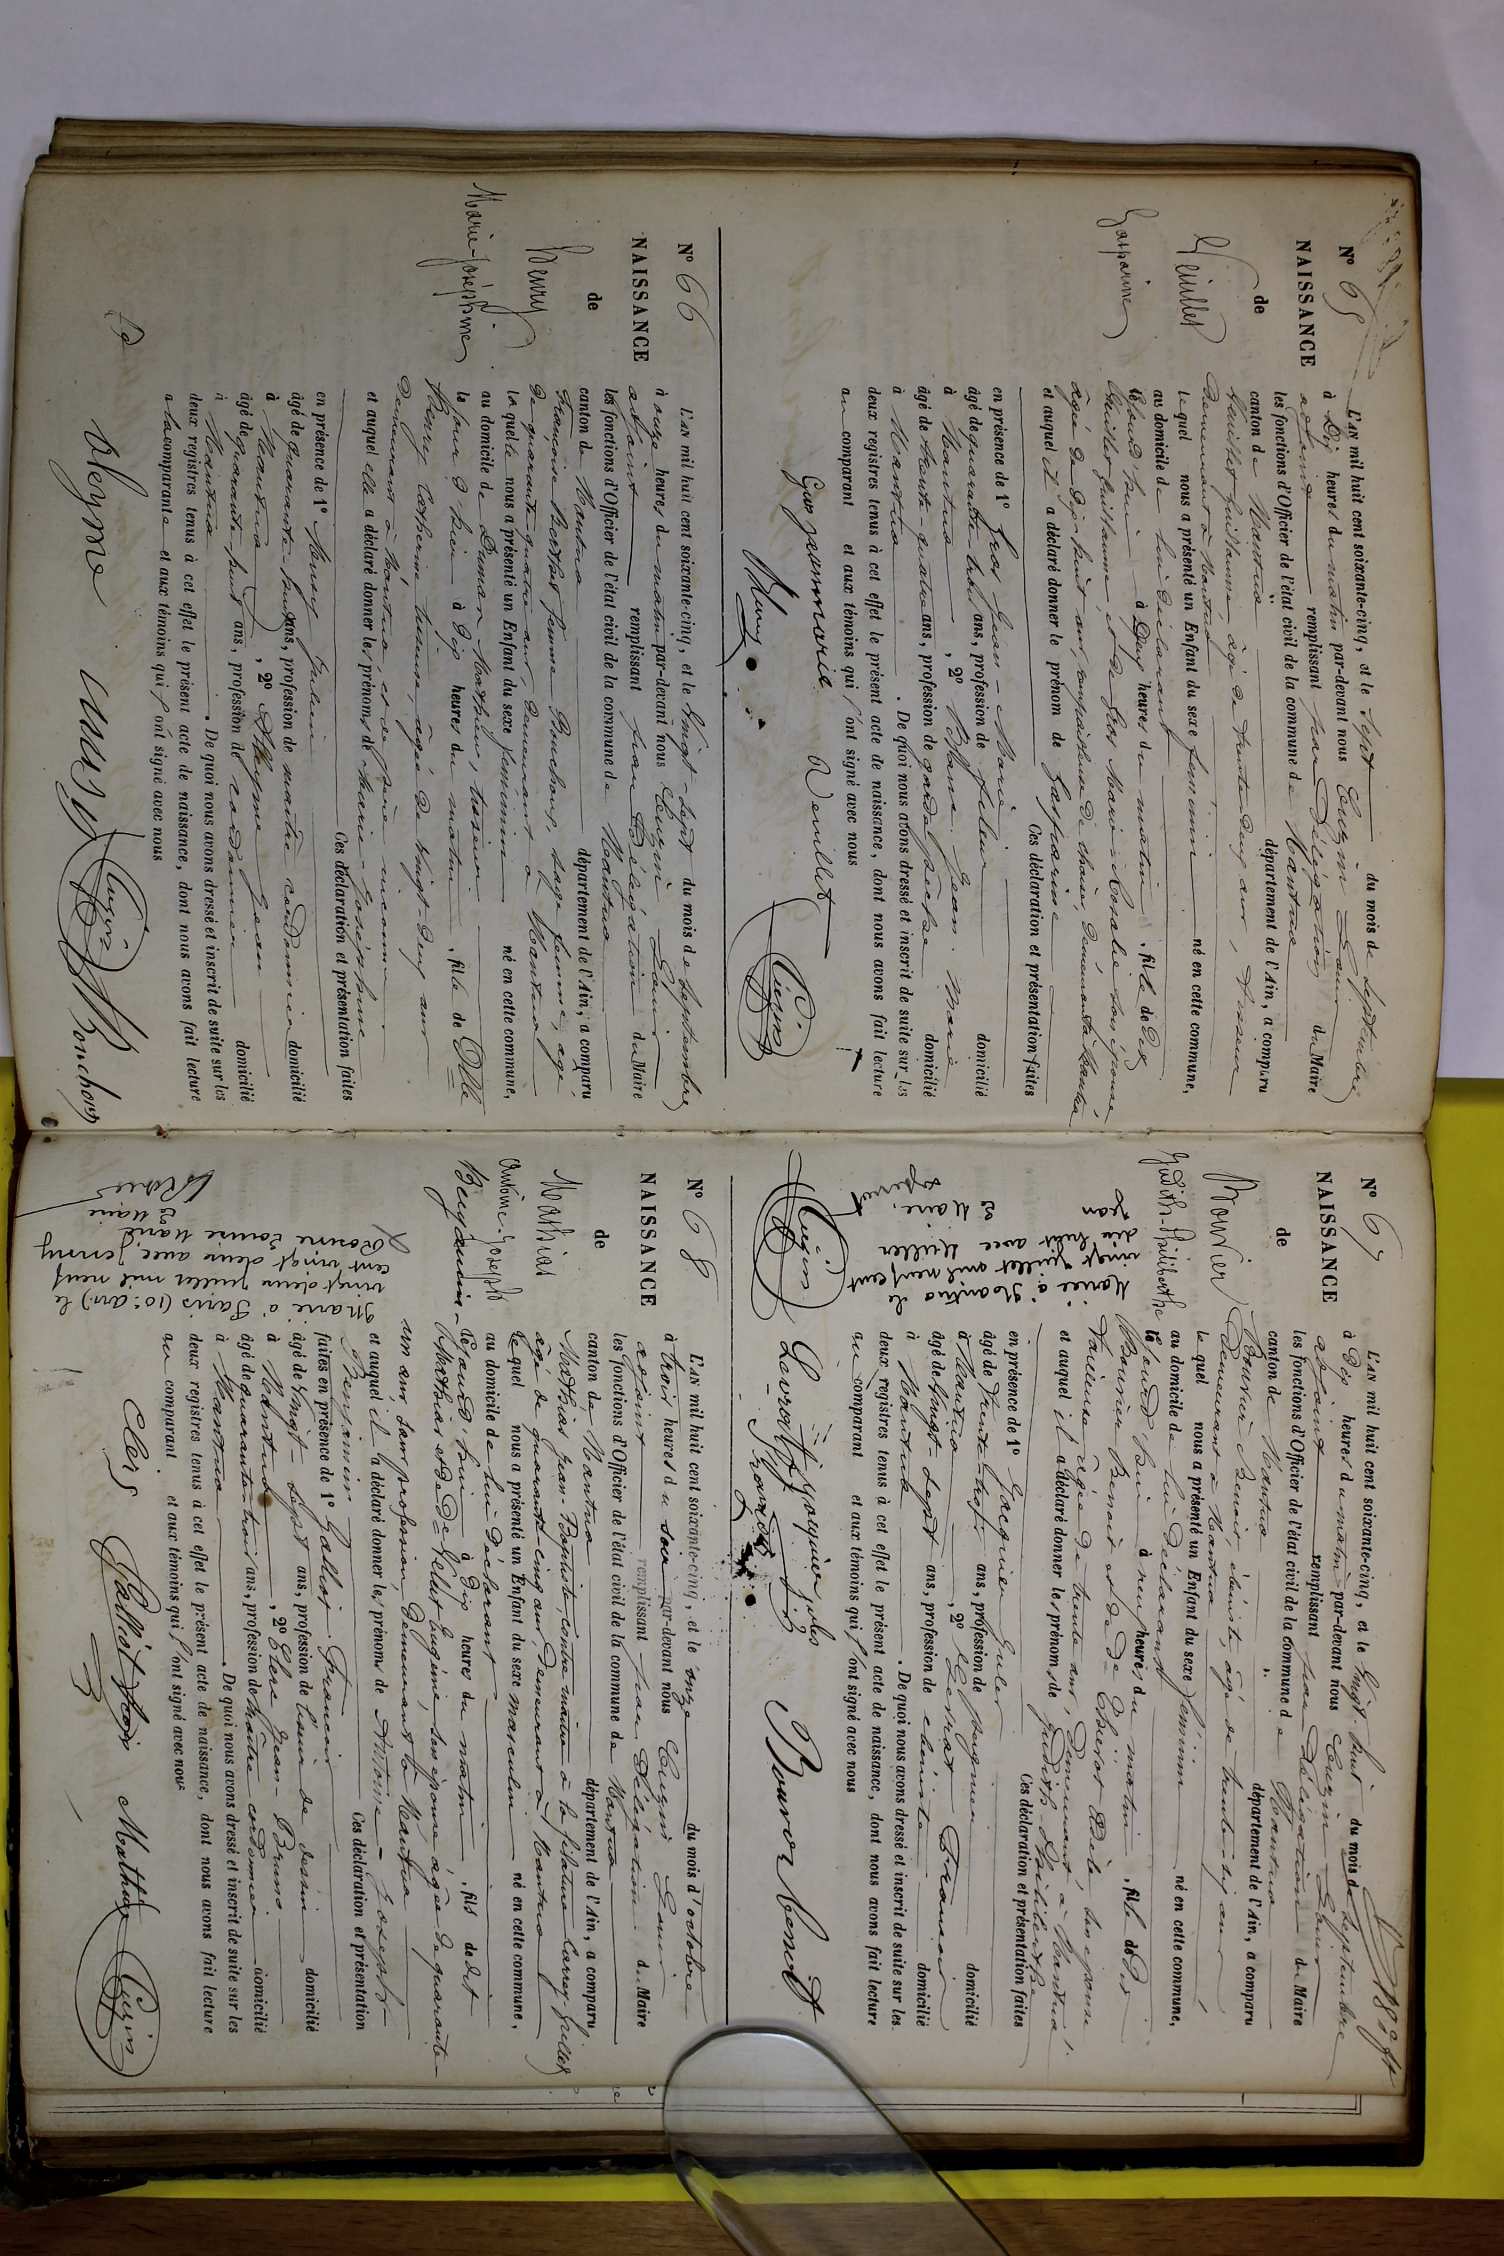 N° 65
NAISSANCE
de
Veuillet
Gasparine
L'AN mil huit cent soixante-cinq, et le sept du mois de septembre
à Dix heures du matin par-devant nous Eugin Louis
adjoint remplissant par Délégation du Maire
les fonctions d'Officier de l'état civil de la commune de Nantua
canton de Nantua département de l'Ain, a comparu
Veuillet Guillaume, âgé de trente deux ans,
demeurant à Nantua
lequel nous a présenté un Enfant du sexe féminin né en cette commune,
au domicile de lui déclarant
le jourd'hui à Deux heures du matin, fille de Dit
Veuillet Guillaume et de Gros Marie Rosalie son épouse
âgée de dix huit ans, demeurant à Nantua
et auquel il a déclaré donner le prénom de Gasparine
Ces déclaration et présentation faites
en présence de 1° Gros Jean-Marie
âgé de quarante trois ans, profession de fileur domicilié
à Nantua, 2° Blanc Jean Marie
âgé de trente-quatre ans, profession de garde pêche domicilié
à Nantua. De quoi nous avons dressé et inscrit de suite sur les
deux registres tenus à cet effet le présent acte de naissance, dont nous avons fait lecture
au comparant et aux témoins qui l'ont signé avec nous
Gros jeanmarie Veuillet
N° 66
NAISSANCE
de
Henry
Marie-Joséphine
L'AN mil huit cent soixante-cinq, et le vingt-sept du mois de septembre
à onze heures du matin par-devant nous Eugin Louis
adjoint remplissant par Délégation du Maire
les fonctions d'Officier de l'état civil de la commune de Nantua
canton de Nantua département de l'Ain, a comparu
Françoise femme Bonchoux, sage femme, âgé
de quarante quatre ans, demeurant à Nantua
laquelle nous a présenté un Enfant du sexe féminin né en cette commune,
au domicile de Duman Mathieu,
le jour d'hier à dix heures du matin, fille de Delle
Henry Catherine, âgée de vingt-deux ans
demeurant à Nantua, et de père inconnu
et auquel elle a déclaré donner les prénoms de Marie-Joséphine
Ces déclaration et présentation faites
en présence de 1°
âgé de quarante huit ans, profession de maître cordonnier domicilié
à Nantua, 2° Alleyme Jean
âgé de quarante huit ans, profession de cordonnier domicilié
à Nantua. De quoi nous avons dressé et inscrit de suite sur les
deux registres tenus à cet effet le présent acte de naissance, dont nous avons fait lecture
a la comparante et aux témoins qui l'ont signé avec nous
aleyme Bonchoux
N° 67
NAISSANCE
de
Bouvier
Judith-Philiberthe
Mariée à Nantua le
vingt juillet mil neuf cent
dix huit avec Muller
Jean
Le Maire,
L'AN mil huit cent soixante-cinq, et le vingt-huit du mois de septembre
à Dix heures du matin par-devant nous Eugin Louis
adjoint remplissant par Délégation du Maire
les fonctions d'Officier de l'état civil de la commune de Nantua
canton de Nantua département de l'Ain, a comparu
Bouvier Benoit, ébéniste, âgé de trente six ans
demeurant à Nantua
lequel nous a présenté un Enfant du sexe féminin né en cette commune,
au domicile de lui déclarant
le jourd'hui à neuf heures du matin, fille de Dit
Bouvier Benoit et de de Thérot Adèle, son épouse
tailleuse âgée de trente ans, demeurant à Nantua
et auquel il a déclaré donner les prénoms de Judith Philiberthe
Ces déclaration et présentation faites
en présence de 1° Jacquier Jules
âgé de trente trois ans, profession de domicilié
à Nantua, 2° Levrat François
âgé de vingt-sept ans, profession de ébéniste domicilié
à Nantua. De quoi nous avons dressé et inscrit de suite sur les
deux registres tenus à cet effet le présent acte de naissance, dont nous avons fait lecture
au comparant et aux témoins qui l'ont signé avec nous
Levrat françois jaquier jules Bouvier Benoit
N° 68
NAISSANCE
de
Mathias
Antoine-Joseph
Benjamin
Marié à Paris (10e arr.) le
vingt deux juillet mil neuf
cent vingt deux avec Jenny
Louise Marie
Le Maire
L'AN mil huit cent soixante-cinq, et le onze du mois d'octobre
à trois heures du soir par-devant nous Eugin Louis
adjoint remplissant par Délégation du Maire
les fonctions d'Officier de l'état civil de la commune de Nantua
canton de Nantua département de l'Ain, a comparu
Mathias Jean-Baptiste, contre maître à la filature
âgé de quarante-cinq ans, demeurant à Nantua
lequel nous a présenté un Enfant du sexe masculin né en cette commune,
au domicile de lui déclarant
le jourd'hui à dix heures du matin, fils de dit
Mathias et de de Eugénie, son épouse, âgée de quarante
un ans sans profession, demeurant à Nantua
et auquel il a déclaré donner les prénoms de Antoine-Joseph
Benjamin Ces déclaration et présentation
faites en présence de 1° Galliot François
âgé de vingt-sept ans, profession de domicilié
à Nantua, 2° Clerc Jean-Bruno
âgé de quarante-trois ans, profession de maître cordonnier domicilié
à Nantua. De quoi nous avons dressé et inscrit de suite sur les
deux registres tenus à cet effet le présent acte de naissance, dont nous avons fait lecture
au comparant et aux témoins qui l'ont signé avec nous
Clerc Galliot Mathias